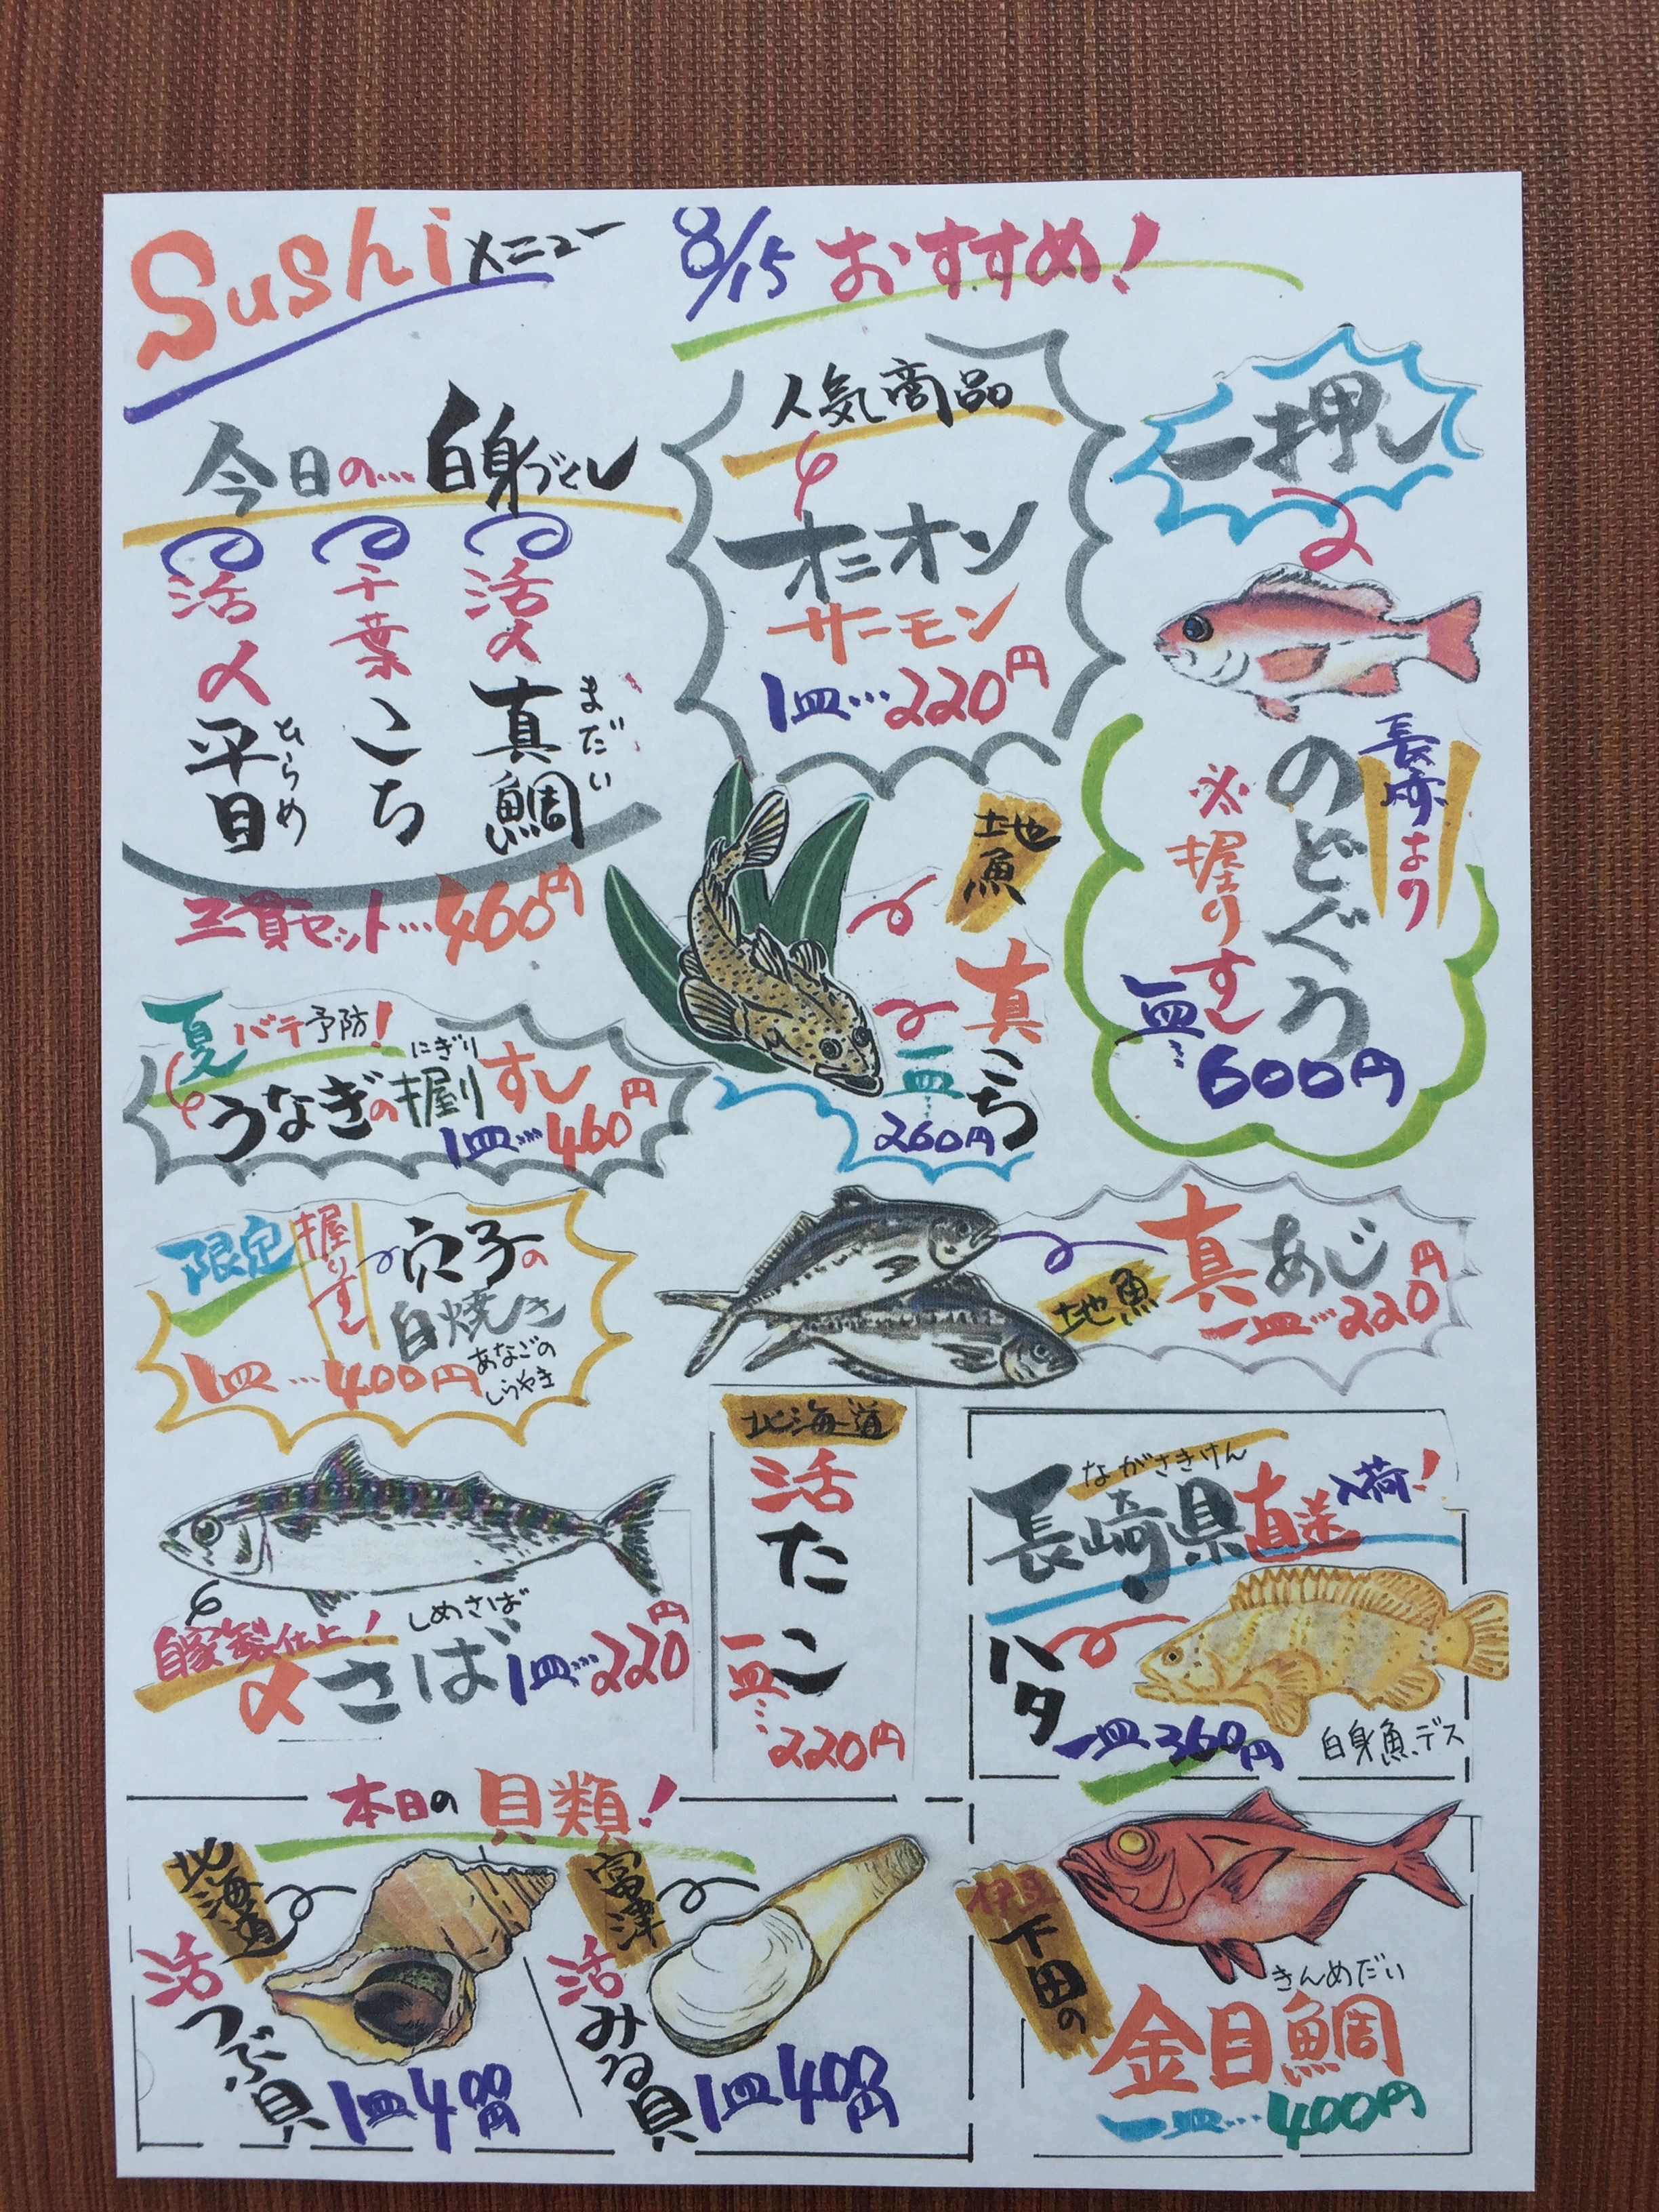 Sushiメニュー
8/15 おすすめ!
今日の…白身づくし
活〆真鯛
まだい
千葉こち
活〆平目
ひらめ
三貫セット…460円
人気商品
オニオン
サーモン
1皿…220円
一押し
長崎より
のどぐろ
※握りすし
一皿…600円
地魚
真こち
一皿…
260円
夏バテ予防!
にぎり
うなぎの握りすし
1皿…460円
限定
握りすし
穴子の
白焼き
あなごの
しらやき
1皿…400円
真あじ
地魚
一皿…220円
自家製仕上!
しめさば
〆さば 1皿…220円
北海道
活たこ
一皿…
220円
ながさきけん
長崎県直送入荷!
ハタ
一皿360円
白身魚、デス
本日の貝類!
北海道
活つぶ貝
1皿400円
富津
活みる貝
1皿400円
伊豆下田の
きんめだい
金目鯛
一皿…400円